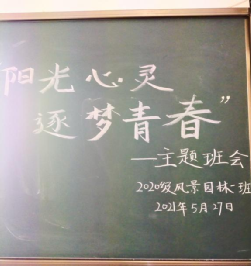 “阳光心灵
逐梦青春”
—主题班会
2020级风景园林一班
2021年5月27日